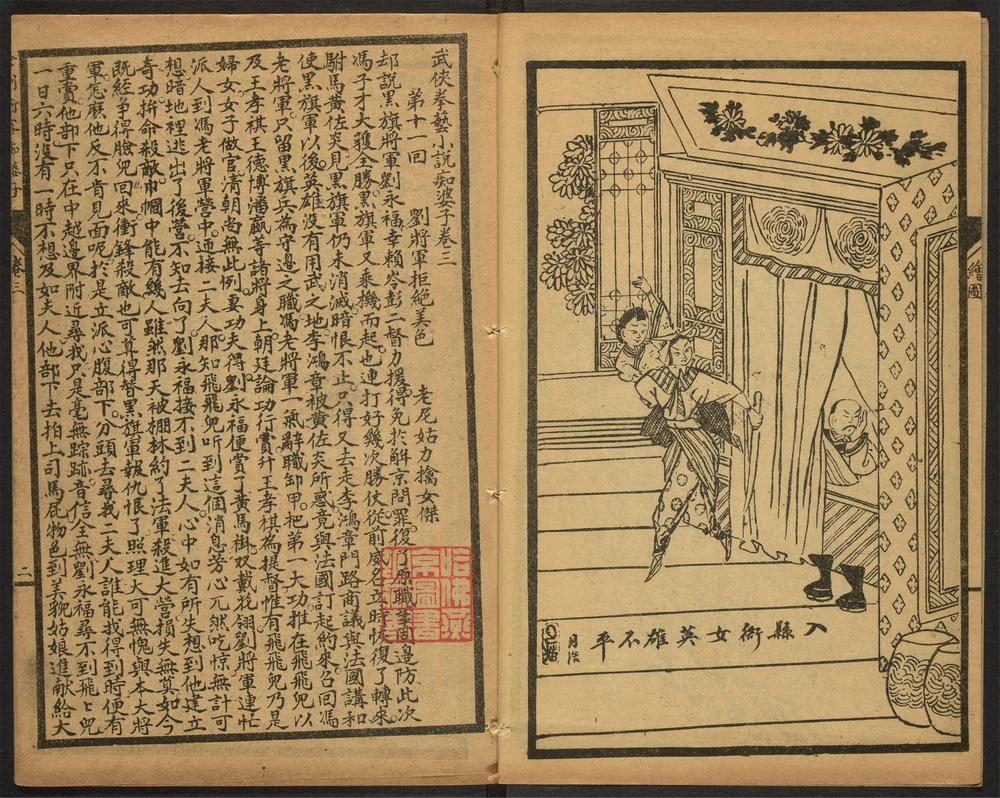 繪圖
入縣衙女英雄不平
月浩
武俠拳藝小說痴婆子卷三
第十一回　劉將軍拒絕美色　老尼姑力擒女傑
却說黑旗將軍劉永福幸賴岑彭二督力援得免於解京問罪復了原職鞏固邊防此次
馮子才大獲全勝黑旗軍又乘機而起也連打好幾次勝仗從前威名立時恢復了轉來
駙馬黃佐炎見黑旗軍仍未消滅暗恨不止只得又去走李鴻章門路商議與法國講和
使黑旗軍以後英雄沒有用武之地李鴻章被黃佐炎所惑竟與法國訂起約來召回馮
老將軍只留黑旗兵為守邊之職馮老將軍一氣辭職卸甲把第一大功推在飛飛兒以
及王孝祺王德博潘嬴等諸將身上朝廷論功行賞升王孝祺為提督惟有飛飛兒乃是
婦女女子做官清朝尚無此例妻功夫得劉永福便賞了黃馬褂双戴花翎劉將軍連忙
派人到馮老將軍營中迎接二夫人那知飛飛兒听到這個消息芳心兀然吃惊無計可
想暗地裡逃出了後營不知去向了劉永福接不到二夫人心中如有所失想到他建立
奇功拚命殺敵巾幗中能有幾人雖然那天被棚林約了法軍殺進大營損失無算如今
既經爭得臉兒回來衝鋒殺敵也可算得替黑旗軍報仇恨了照理大可無愧與本大將
軍怎麽他反不肯見面呢於是立派心腹部下分頭去尋我二夫人誰能找得到時便有
重賞他部下只在中越邊界附近尋找只是毫無踪跡音信全無劉永福尋不到飛飛兒
一日六時沒有一時不想及如夫人他部下去拍上司馬屁物色到美貌姑娘進献給大
卷三
二
哈佛燕京圖書